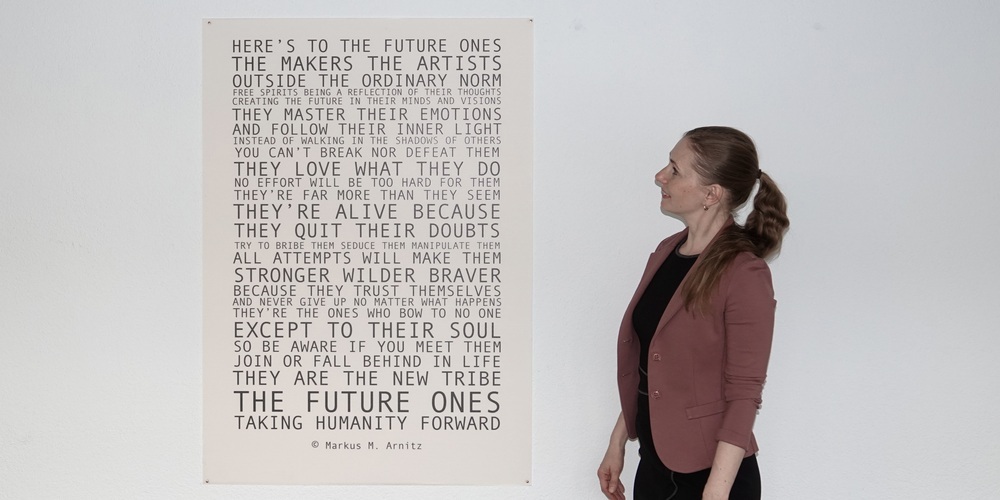 HERE'S TO THE FUTURE ONES
THE MAKERS THE ARTISTS
OUTSIDE THE ORDINARY NORM
FREE SPIRITS BEING A REFLECTION OF THEIR THOUGHTS
CREATING THE FUTURE IN THEIR MINDS AND VISIONS
THEY MASTER THEIR EMOTIONS
AND FOLLOW THEIR INNER LIGHT
INSTEAD OF WALKING IN THE SHADOWS OF OTHERS
YOU CAN'T BREAK NOR DEFEAT THEM
THEY LOVE WHAT THEY DO
NO EFFORT WILL BE TOO HARD FOR THEM
THEY'RE FAR MORE THAN THEY SEEM
THEY'RE ALIVE BECAUSE
THEY QUIT THEIR DOUBTS
TRY TO BRIBE THEM SEDUCE THEM MANIPULATE THEM
ALL ATTEMPTS WILL MAKE THEM
STRONGER WILDER BRAVER
BECAUSE THEY TRUST THEMSELVES
AND NEVER GIVE UP NO MATTER WHAT HAPPENS
THEY'RE THE ONES WHO BOW TO NO ONE
EXCEPT TO THEIR SOUL
SO BE AWARE IF YOU MEET THEM
JOIN OR FALL BEHIND IN LIFE
THEY ARE THE NEW TRIBE
THE FUTURE ONES
TAKING HUMANITY FORWARD
© Markus M. Arnitz